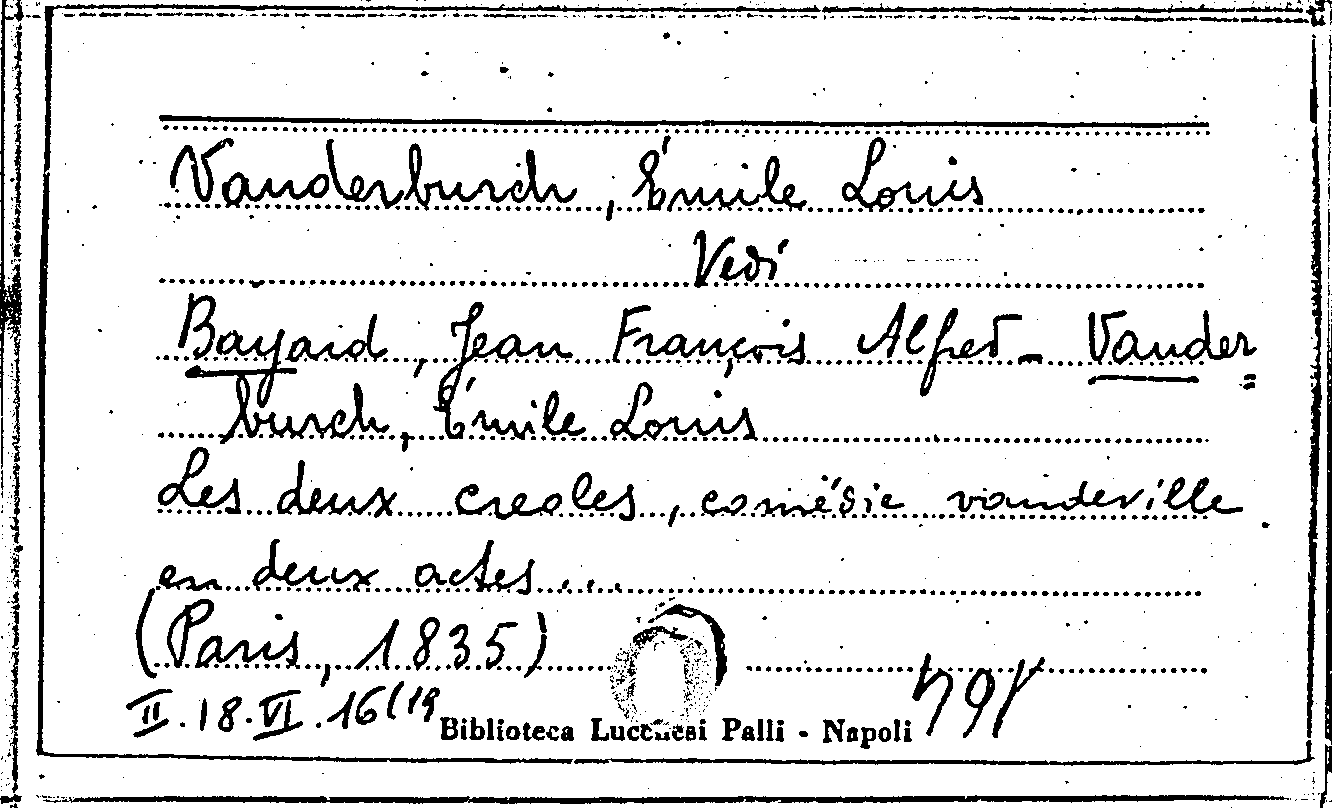 Vanderburch, Émile Louis
Vedi
Bayard, Jean François Alfred - Vander=
burch, Émile Louis
Les deux creoles, comédie vaudeville
en deux actes...
(Paris, 1835)
II.18.VI.16(19
Biblioteca Lucchesi Palli - Napoli